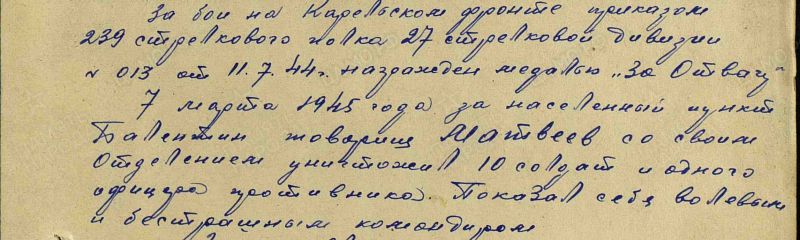 За бои на Карельском фронте приказом
239 стрелкового полка 27 стрелковой дивизии
№ 013 от 11.7.44г. награжден медалью „За Отвагу"
7 марта 1945 года за населенный пункт
Балентин товарищ Матвеев со своим
Отделением уничтожил 10 солдат и одного
офицера противника. Показал себя волевым
и бесстрашным командиром